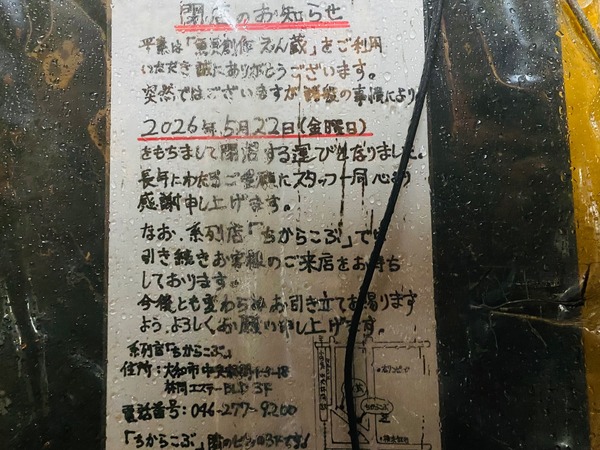 閉店のお知らせ
平素は「魚貝創作 えん蔵」をご利用
いただき誠にありがとうございます。
突然ではございますが諸般の事情により
2026年5月22日(金曜日)
をもちまして閉店する運びとなりました。
長年にわたるご愛顧にスタッフ一同心より
感謝申し上げます。
なお、系列店「ちからこぶ」では
引き続きお客様のご来店をお待ち
しております。
今後とも変わらぬお引き立てを賜ります
よう、よろしくお願い申し上げます。
系列店「ちからこぶ」
住所:大和市中央林間
林間エステートビル 3F
電話番号:046-277-9200
「ちからこぶ」